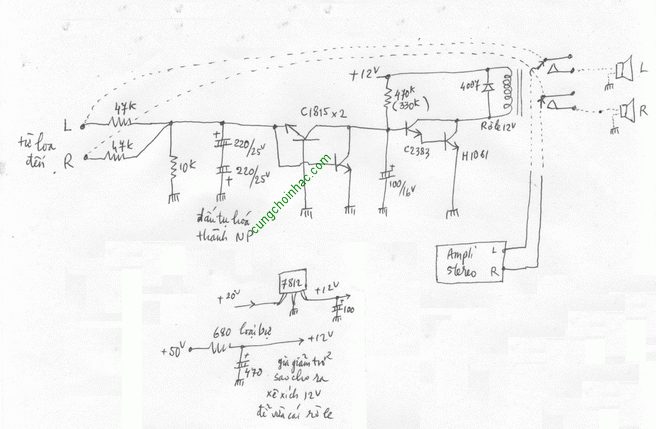 +12V
470K
(330K)
4007
Rơle 12V
L
R
C1815 x 2
47K
L
từ loa
đến
R
47K
10K
220/25V
220/25V
C2383
H1061
100/16V
đấu tụ hoá
thành NP
cungchoinhac.com
Ampli
Stereo
L
R
7812
+20V
+12V
100
680 loại bự
+50V
+12V
470
gia giảm trở
sao cho ra
xê xích 12V
để vừa cái rơ le